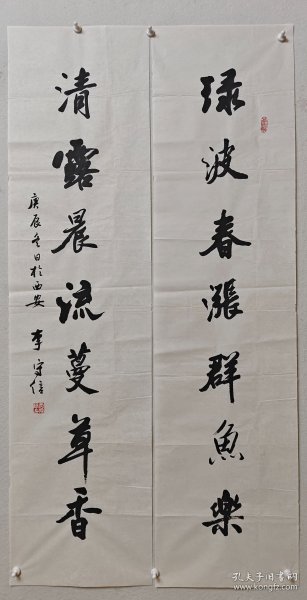 绿波春漲群魚樂
清露晨流蔓草香
庚辰冬日於西安 李守信
孔夫子旧书网
www.kongfz.com